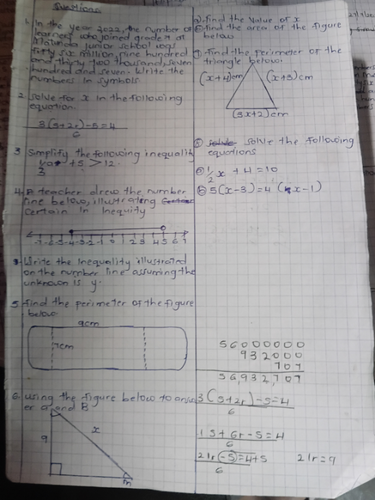 Questions
1. In the year 2022, the number of
learners who joined grade 7 at
junior school was
fifty six million nine hundred
and thirty two thousand, seven
hundred and seven. Write the
numbers in symbols.
2. Solve for x in the following
equation.
3(5+2r)-5=4
6
3. Simplify the following inequalit
+5 > 12.
3
4. A teacher drew the number
line below, illustrating
certain in Inequity
-7 -6 -5 -4 -3 -2 -1 0 1 2 3 4 5 6 7
Write the Inequality illustrated
on the number line assuming the
unknown is y.
5. Find the perimeter of the figure
below.
9cm
7cm
6. using the figure below to answ
er a and B
9
x
a. Find the value of x
Find the area of the figure
below
7. Find the perimeter of the
triangle below:
(x+4)cm
(x+3)cm
(3x+2)cm
8. Solve the following
equations
a 1/2 x + 4 = 10
b 5(x-3)=4(x-1)
56000000
932000
707
56,932,707
3(5+2r)-5=4
6
15+6r-5=4
6
21r(-5)=4+5
6
21r=9